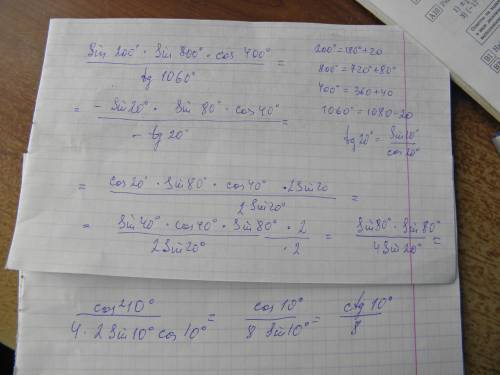 (sin 200° · sin 800° · cos 400°) / (tg 1060°) =
200° = 180° + 20
800° = 720° + 80°
400° = 360 + 40
1060° = 1080 - 20
tg 20° = sin 20° / cos 20°
= (- sin 20° · sin 80° · cos 40°) / (- tg 20°) =
= (cos 20° · sin 80° · cos 40° · 2 sin 20) / (2 sin 20°) =
= (sin 40° · cos 40° · sin 80° · 2) / (2 sin 20° · 2) = (sin 80° · sin 80°) / (4 sin 20°) =
(cos² 10°) / (4 · 2 sin 10° cos 10°) = (cos 10°) / (8 sin 10°) = (ctg 10°) / 8